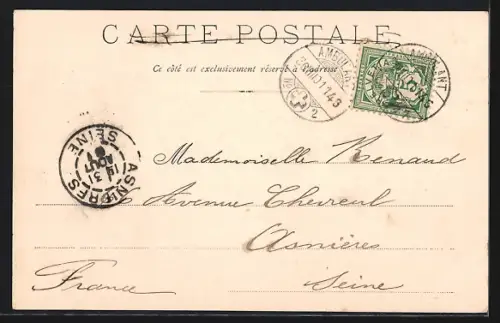 CARTE POSTALE
Ce côté est exclusivement réservé à l'adresse
AMBULANT
2
HELVETIA
5
ASNIÈRES
SEINE
31
AOUT
Mademoiselle Renaud
Avenue Chevreul
Asnières
Seine
France